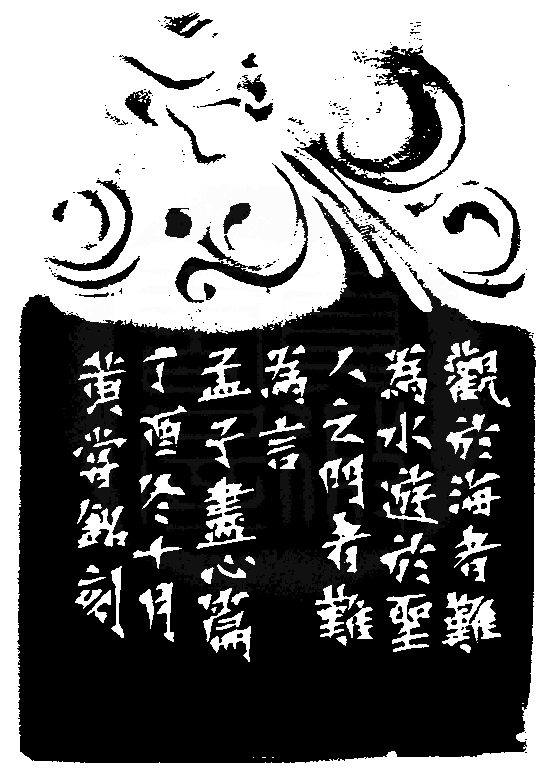 觀於海者難
為水遊於聖
人之門者難
為言
孟子盡心篇
丁酉冬十月
黃嘗銘刻